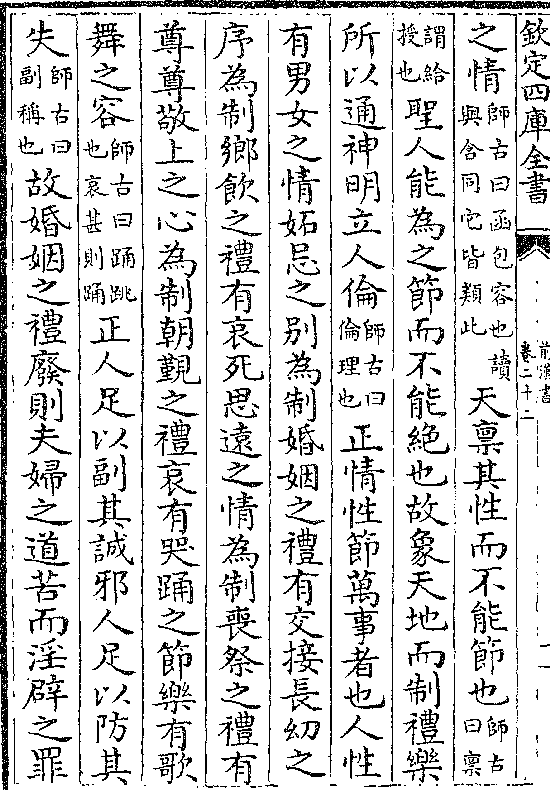 欽定四庫全書
前漢書
卷二十二
之情師古曰函包容也讀與含同它皆類此天禀其性而不能節也師古曰禀
謂給授也聖人能為之節而不能絕也故象天地而制禮樂
所以通神明立人倫師古曰倫理也正情性節萬事者也人性
有男女之情妬忌之别為制婚姻之禮有交接長幼之
序為制鄉飲之禮有哀死思遠之情為制喪祭之禮有
尊尊敬上之心為制朝覲之禮哀有哭踊之節樂有歌
舞之容師古曰踊跳也哀甚則踊正人足以副其誠邪人足以防其
失師古曰副稱也故婚姻之禮廢則夫婦之道苦而淫辟之罪